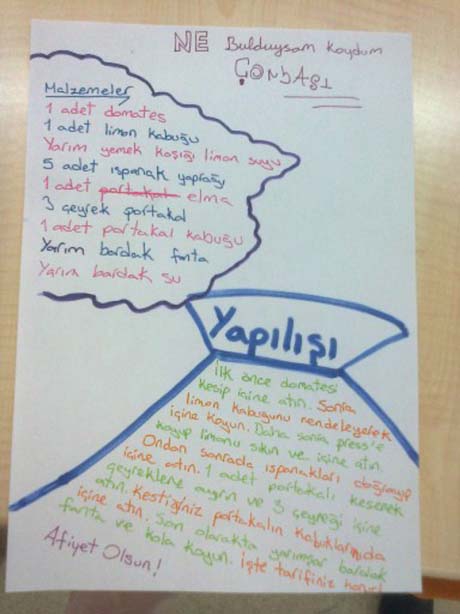 NE Bulduysam Koydum
ÇORBASI
Malzemeler
1 adet domates
1 adet limon kabuğu
Yarım yemek kaşığı limon suyu
5 adet ıspanak yaprağı
1 adet portakal elma
3 çeyrek portakal
1 adet portakal kabuğu
Yarım bardak fanta
Yarım bardak su
Yapılışı
İlk önce domatesi
kesip içine atın. Sonra
limon kabuğunu rendeleyerek
içine koyun. Daha sonra press'e
koyup limonu sıkın ve içine atın.
Ondan sonrada ıspanakları doğrayıp
içine atın. 1 adet portakalı keserek
çeyreklere ayırın ve 3 çeyreği içine
atın. Kestiğiniz portakalın kabuklarınıda
içine atın. Son olarakta yarımşar bardak
fanta ve kola koyun. İşte tarifiniz hazır!
Afiyet Olsun!